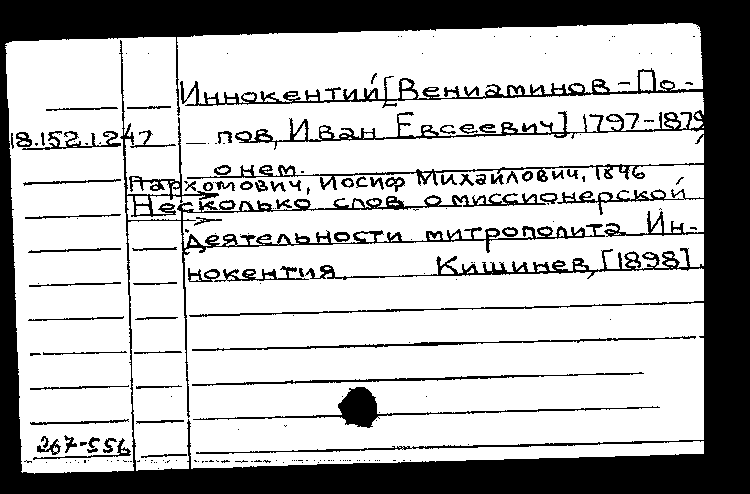 Иннокентий [Вениаминов-По-
18.152.1.247 пов, Иван Евсеевич], 1797-1879
о нем.
Пархомович, Иосиф Михайлович, 1846
Несколько слов о миссионерской
деятельности митрополита Ин-
нокентия. Кишинев, [1898].
267-556